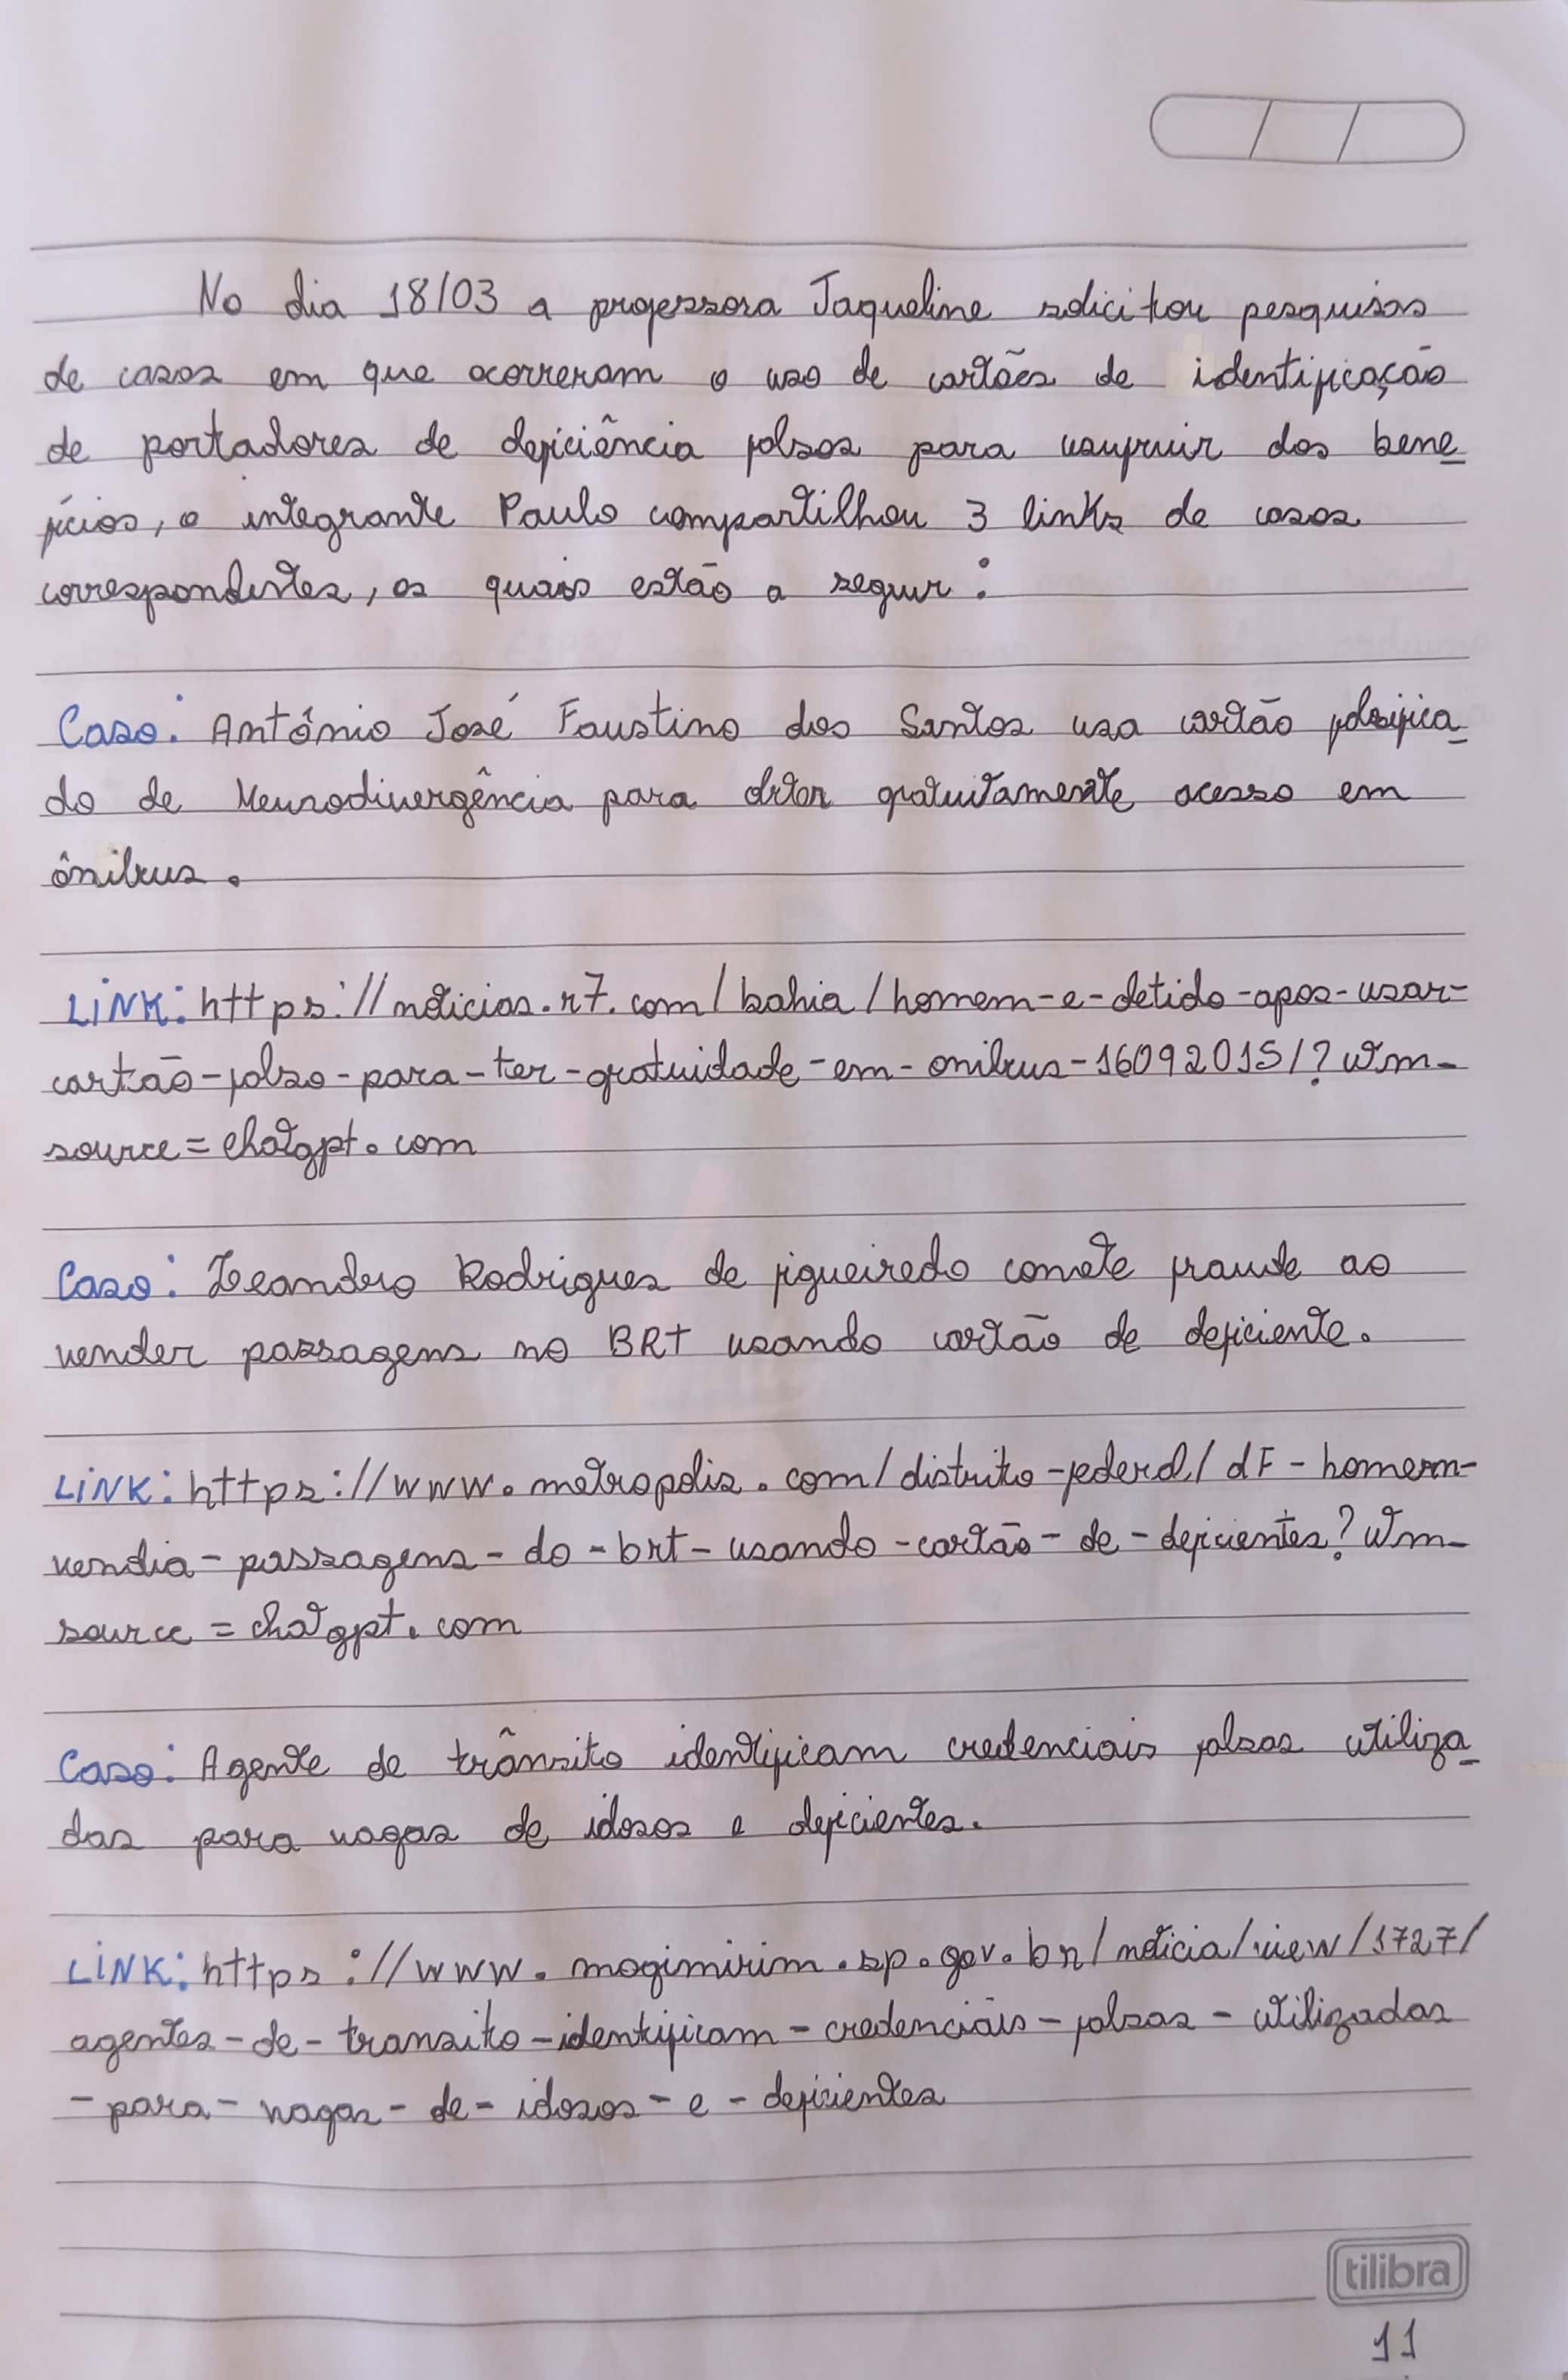 No dia 18/03 a professora Jaqueline solicitou pesquisas
de casos em que ocorreram o uso de cartões de identificação
de portadores de deficiência falsos para usufruir dos bene
fícios, o integrante Paulo compartilhou 3 links de casos
correspondentes, os quais estão a seguir:
Caso: Antônio José Faustino dos Santos usa cartão falsifica
do de Neurodivergência para obter gratuitamente acesso em
ônibus.
LINK: https://noticias.r7.com/bahia/homem-e-detido-apos-usar-
cartão-falso-para-ter-gratuidade-em-onibus-16092015/?utm-
source=chatgpt.com
Caso: Leandro Rodrigues de figueiredo comete fraude ao
vender passagens no BRT usando cartão de deficiente.
LINK: https://www.metropolis.com/distrito-federal/dF-homem-
vendia-passagens-do-brt-usando-cartão-de-deficientes?utm-
source=chatgpt.com
Caso: Agente de trânsito identificam credenciais falsas utiliza
das para vagas de idosos e deficientes.
LINK: https://www.mogimirim.sp.gov.br/noticia/view/1727/
agentes-de-transito-identificam-credenciais-falsas-utilizadas
-para-vagas-de-idosos-e-deficientes
tilibra
11